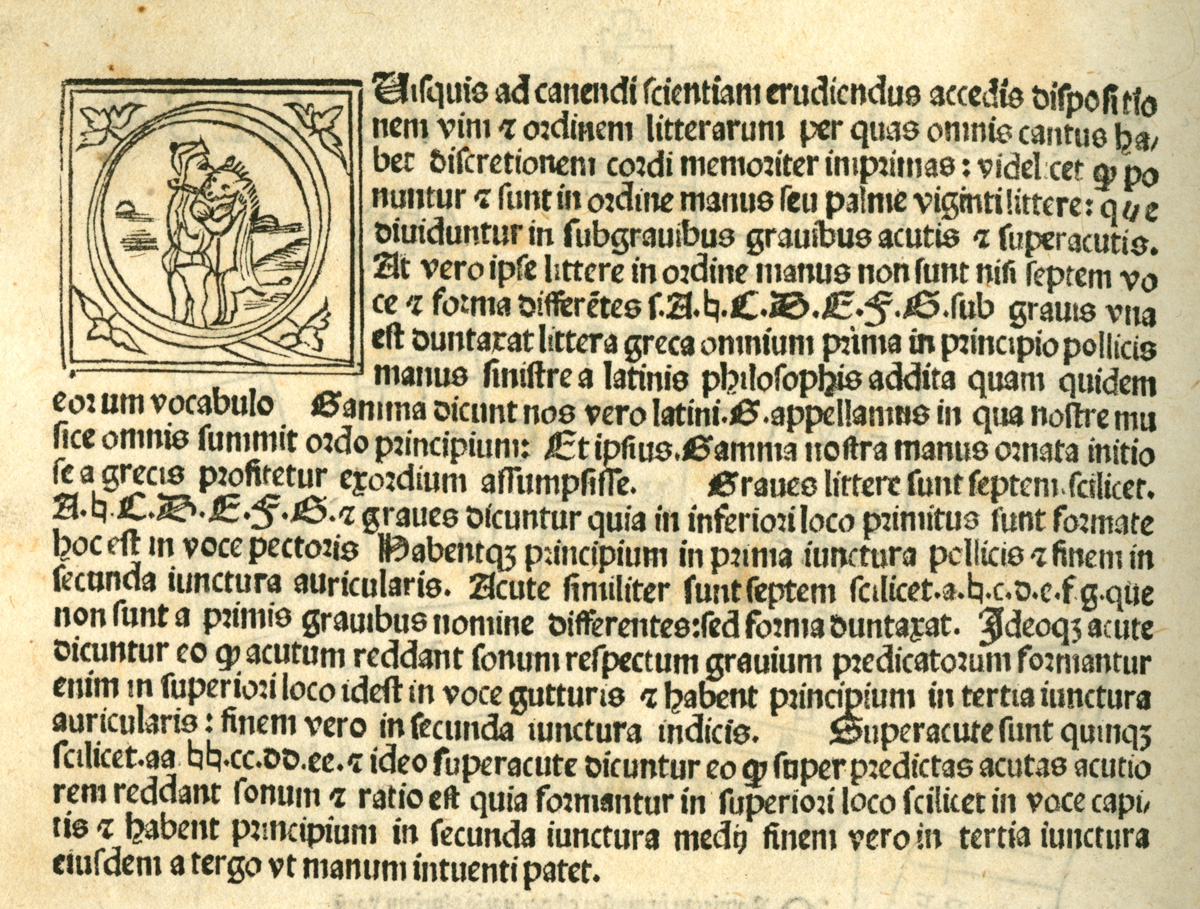 Uisquis ad canendi scientiam erudiendus accedis dispositio
nem vim ⁊ ordinem litterarum per quas omnis cantus ha/
bet discretionem cordi memoriter imprimas: videlicet ꝙ po
nuntur ⁊ sunt in ordine manus seu palme viginti littere: que
diuiduntur in subgrauibus grauibus acutis ⁊ superacutis.
At vero ipse littere in ordine manus non sunt nisi septem vo
ce ⁊ forma differẽtes s.A.♮.C.D.E.F.G.sub grauis vna
est duntaxat littera greca omnium prima in principio pollicis
manus sinistre a latinis philosophis addita quam quidem
eorum vocabulo Gamma dicunt nos vero latini.G.appellamus in qua nostre mu
sice omnis summit ordo principium: Et ipsius.Gamma nostra manus ornata initio
se a grecis profitetur exordium assumpsisse. Graues littere sunt septem.scilicet.
A.♮.C.D.E.F.G.⁊ graues dicuntur quia in inferiori loco primitus sunt formate
hoc est in voce pectoris Habentqꝫ principium in prima iunctura pollicis ⁊ finem in
secunda iunctura auricularis. Acute similiter sunt septem scilicet.a.♮.c.d.e.f.g.que
non sunt a primis grauibus nomine differentes:sed forma duntaxat. Ideoqꝫ acute
dicuntur eo ꝙ acutum reddant sonum respectum grauium predicatorum formantur
enim in superiori loco idest in voce gutturis ⁊ habent principium in tertia iunctura
auricularis: finem vero in secunda iunctura indicis. Superacute sunt quinqꝫ
scilicet.aa.♮♮.cc.dd.ee.⁊ ideo superacute dicuntur eo ꝙ super predictas acutas acutio
rem reddant sonum ⁊ ratio est quia formantur in superiori loco scilicet in voce capi/
tis ⁊ habent principium in secunda iunctura medij finem vero in tertia iunctura
eiusdem a tergo vt manum intuenti patet.